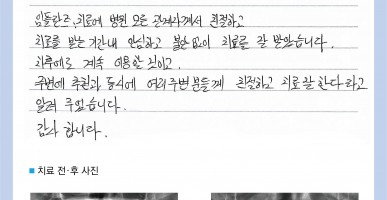 임플란트, 치료에 병원 모든 관계자께서 친절하고
치료를 받는 기간내 안심하고 불안 없이 치료를 잘 받았습니다.
차후에도 계속 이용할 것이고.
주변에 추천과 동시에 여러 주변 분들께 친절하고 치료 잘 한다라고
알려 주었습니다.
감사 합니다.
■ 치료 전·후 사진